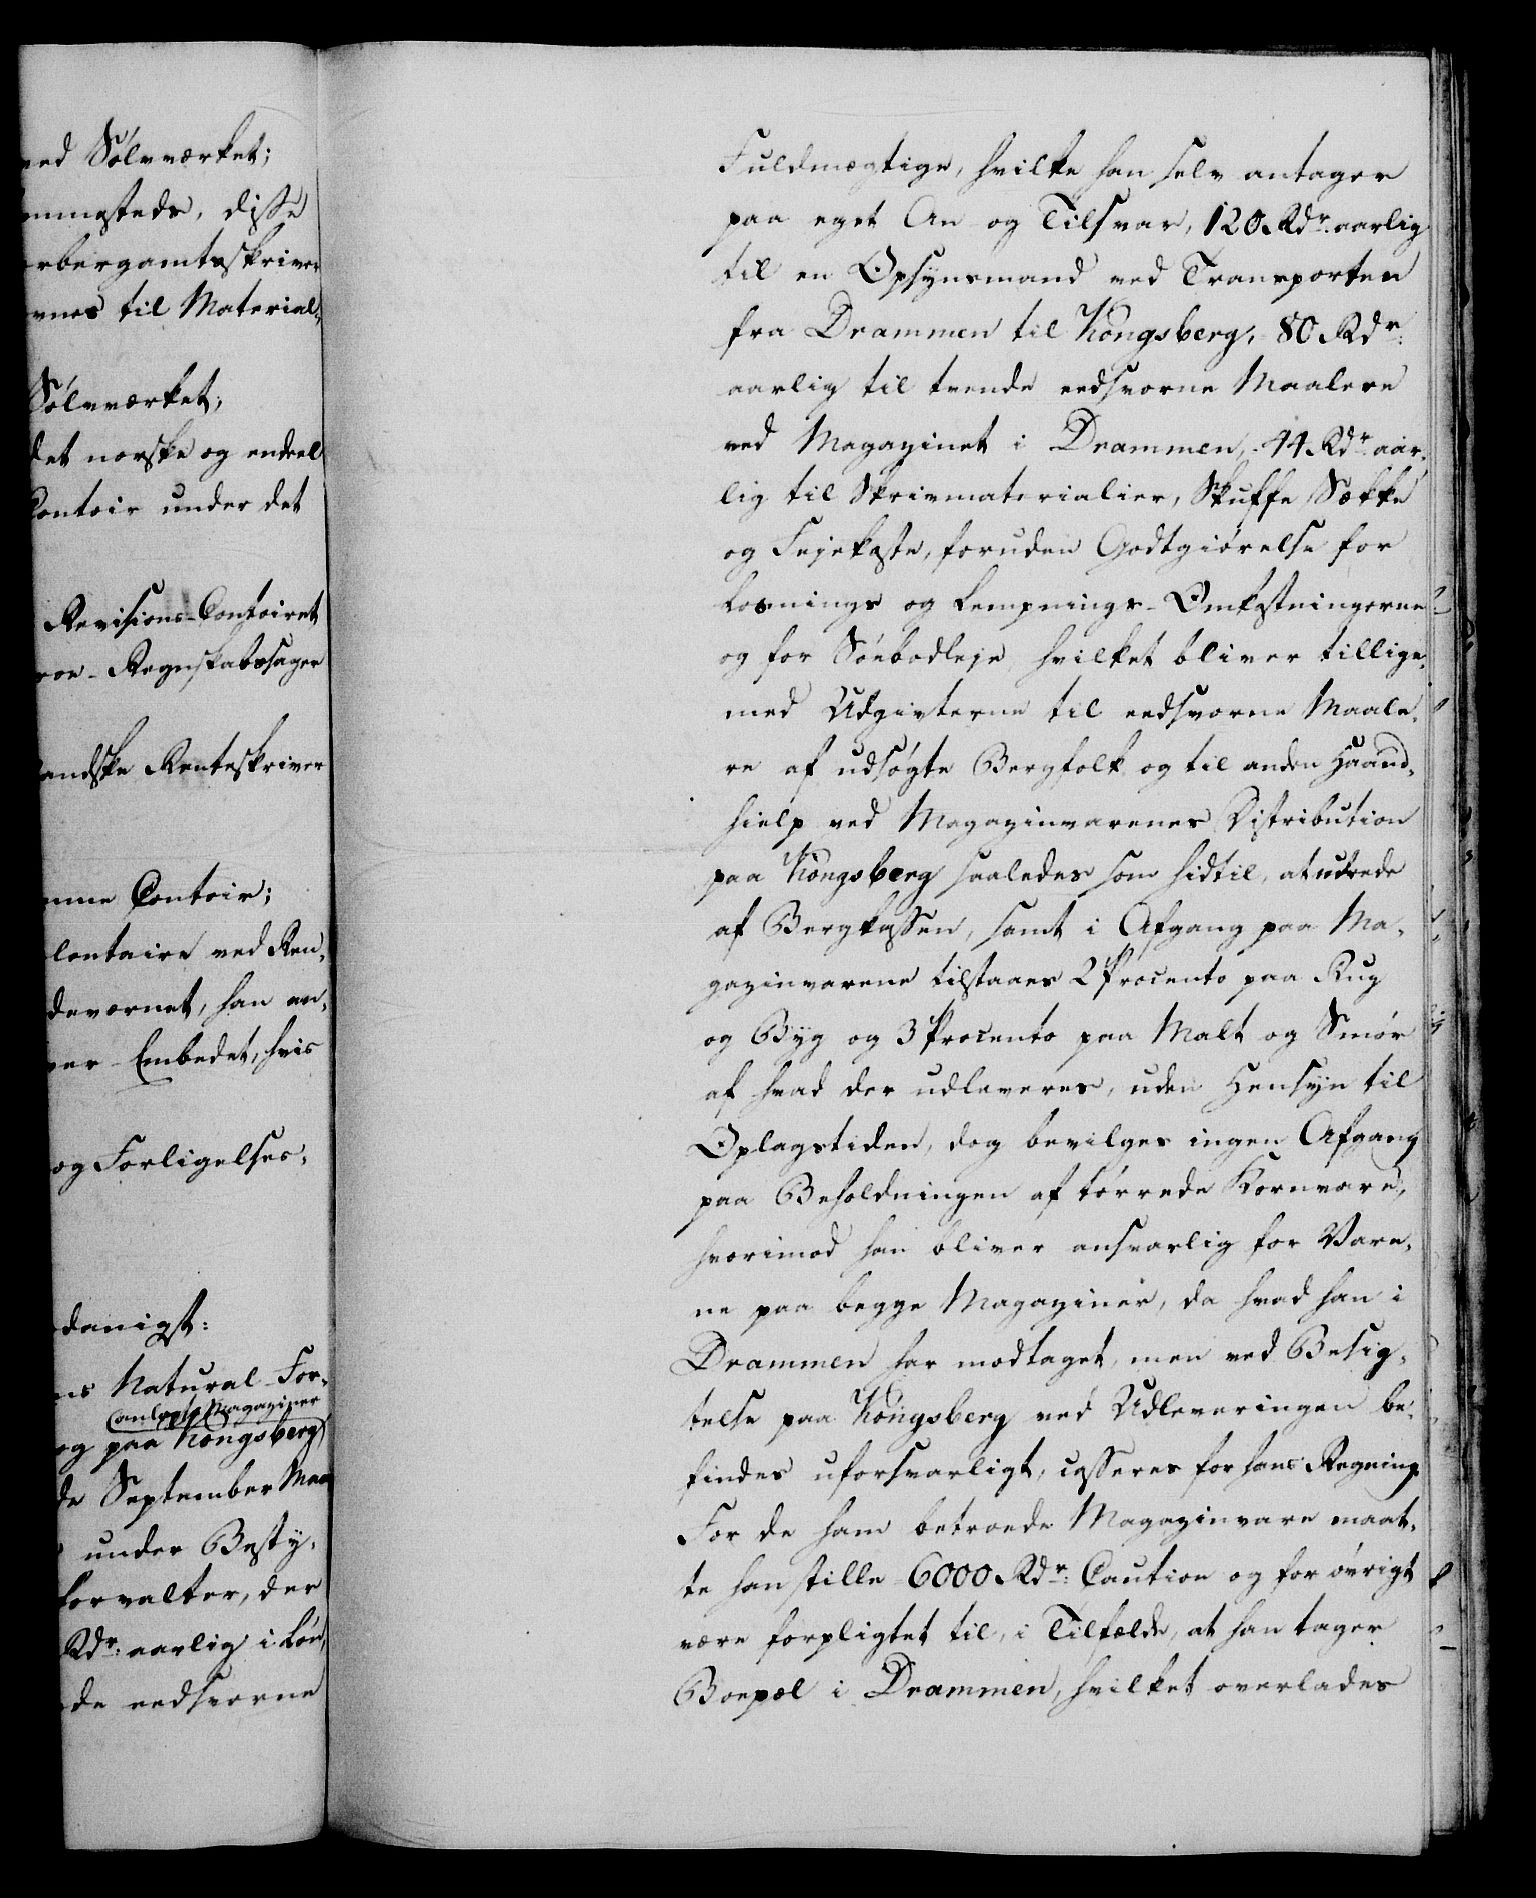 ved Sølvværket;
mmesteds, disse
rbergamtsskriver
vnes til Material-
Sølvværket,
det norske og endeel
Contoir under det
Revisions-Contoiret
Regnskabssager
andske Renteskriver
mme Contoir;
lontaire ved Ren-
deværnet, han
Embedet, hvis
og Forligelses-
danigst:
ns Natural-For-
anlagte Magaziner
og paa Kongsberg
de September Maa
under Besty-
forvalter, der
Rdr: aarlig i Løn,
de eedsvorne
Fuldmægtige, hvilke han selv antager
paa eget An- og Tilsvar, 120 Rdr. aarlig
til en Opsynsmand ved Transporten
fra Drammen til Kongsberg, 80 Rdr:
aarlig til tvende eedsvorne Maalere
ved Magazinet i Drammen, 44 Rdr. aar-
lig til Skrivmaterialier, Skuffe, Sække
og Fejekoste, foruden Godtgiørelse for
Losnings og Lempnings-Omkostningerne
og for Søebodleje, hvilket bliver tillige-
med Udgivterne til eedsvorne Maale-
re af udsøgte Bergfolk og til anden Haand-
hielp ved Magazinvarenes Distribution
paa Kongsberg saaledes som hidtil, at udrede
af Bergkassen, samt i Afgang paa Ma-
gazinvarene tilstaaes 2 Procento paa Rug
og Byg og 3 Procento paa Malt og Smør
af hvad der udleveres, uden Hensyn til
Oplagstiden, dog bevilges ingen Afgang
paa Beholdningen af tørrede Kornvare,
hvorimod han bliver ansvarlig for Vare-
ne paa begge Magaziner, da hvad han i
Drammen har modtaget, men ved Besig-
telse paa Kongsberg ved Udleveringen be-
findes uforsvarligt, casseres for hans Regning.
For de ham betroede Magazinvare maat-
te han stille 6000 Rdr: Caution og for øvrigt
være forpligtet til, i Tilfælde, at han tager
Boepæl i Drammen, hvilket overlades